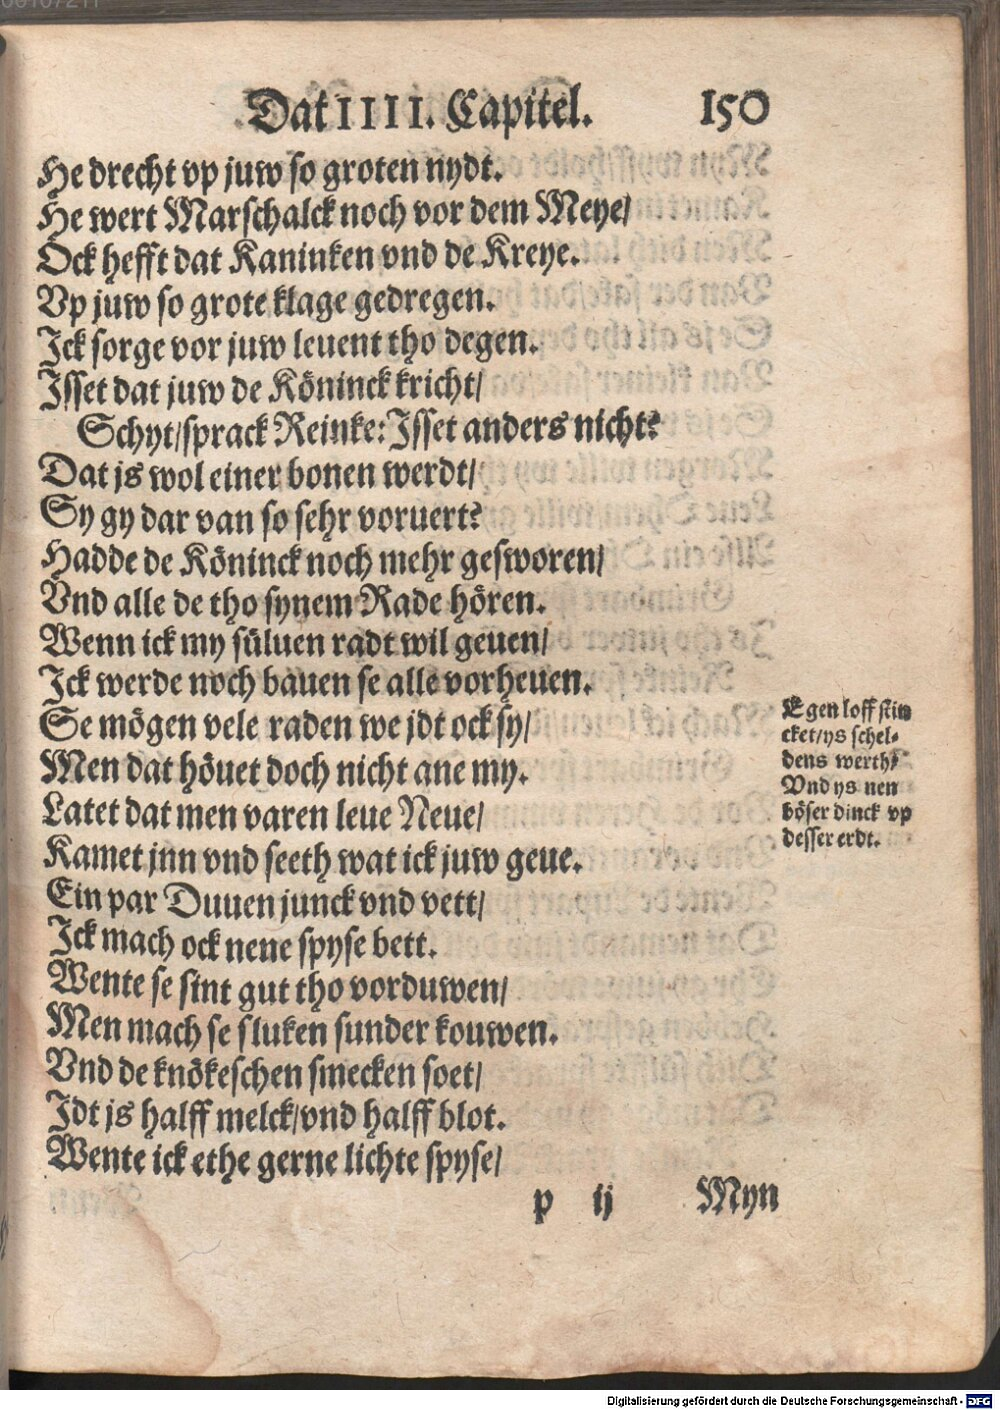 Dat IIII. Capitel. 150
He drecht vp juw so groten nydt.
He wert Marschalck noch vor dem Meye/
Ock hefft dat Kaninken vnd de Kreye.
Vp juw so grote klage gedregen.
Jck sorge vor juw leuent tho degen.
Jsset dat juw de Köninck kricht/
Schyt/sprack Reinke: Jsset anders nicht?
Dat js wol einer bonen werdt/
Sy gy dar van so sehr voruert?
Hadde de Köninck noch mehr gesworen/
Vnd alle de tho synem Rade hören.
Wenn ick my süluen radt wil geuen/
Jck werde noch bauen se alle vorheuen.
Se mögen vele raden we jdt ock sy/
Men dat höuet doch nicht ane my.
Latet dat men varen leue Neue/
Kamet jnn vnd seeth wat ick juw geue.
Ein par Duuen junck vnd vett/
Jck mach ock nene spyse bett.
Wente se sint gut tho vorduwen/
Men mach se sluken sunder kouwen.
Vnd de knökeschen smecken soet/
Jdt js halff melck/vnd halff blot.
Wente ick ethe gerne lichte spyse/
Egen loff stin
cket/ys schel-
dens werth/
Vnd ys nen
böser dinck vp
desser erdt.
p ij Myn
Digitalisierung gefördert durch die Deutsche Forschungsgemeinschaft - DFG